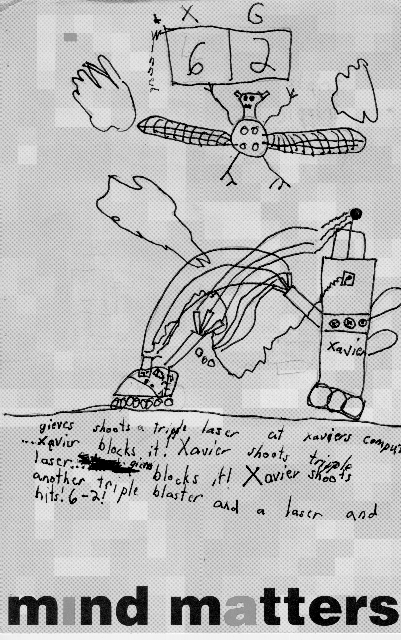 X G
6 2
xavier
gieves shoots a triple laser at xaviers comput
...xavier blocks it! Xavier shoots triple
laser... gievs blocks it! Xavier shoots
another triple blaster and a laser and
hits! 6-2!
mind matters